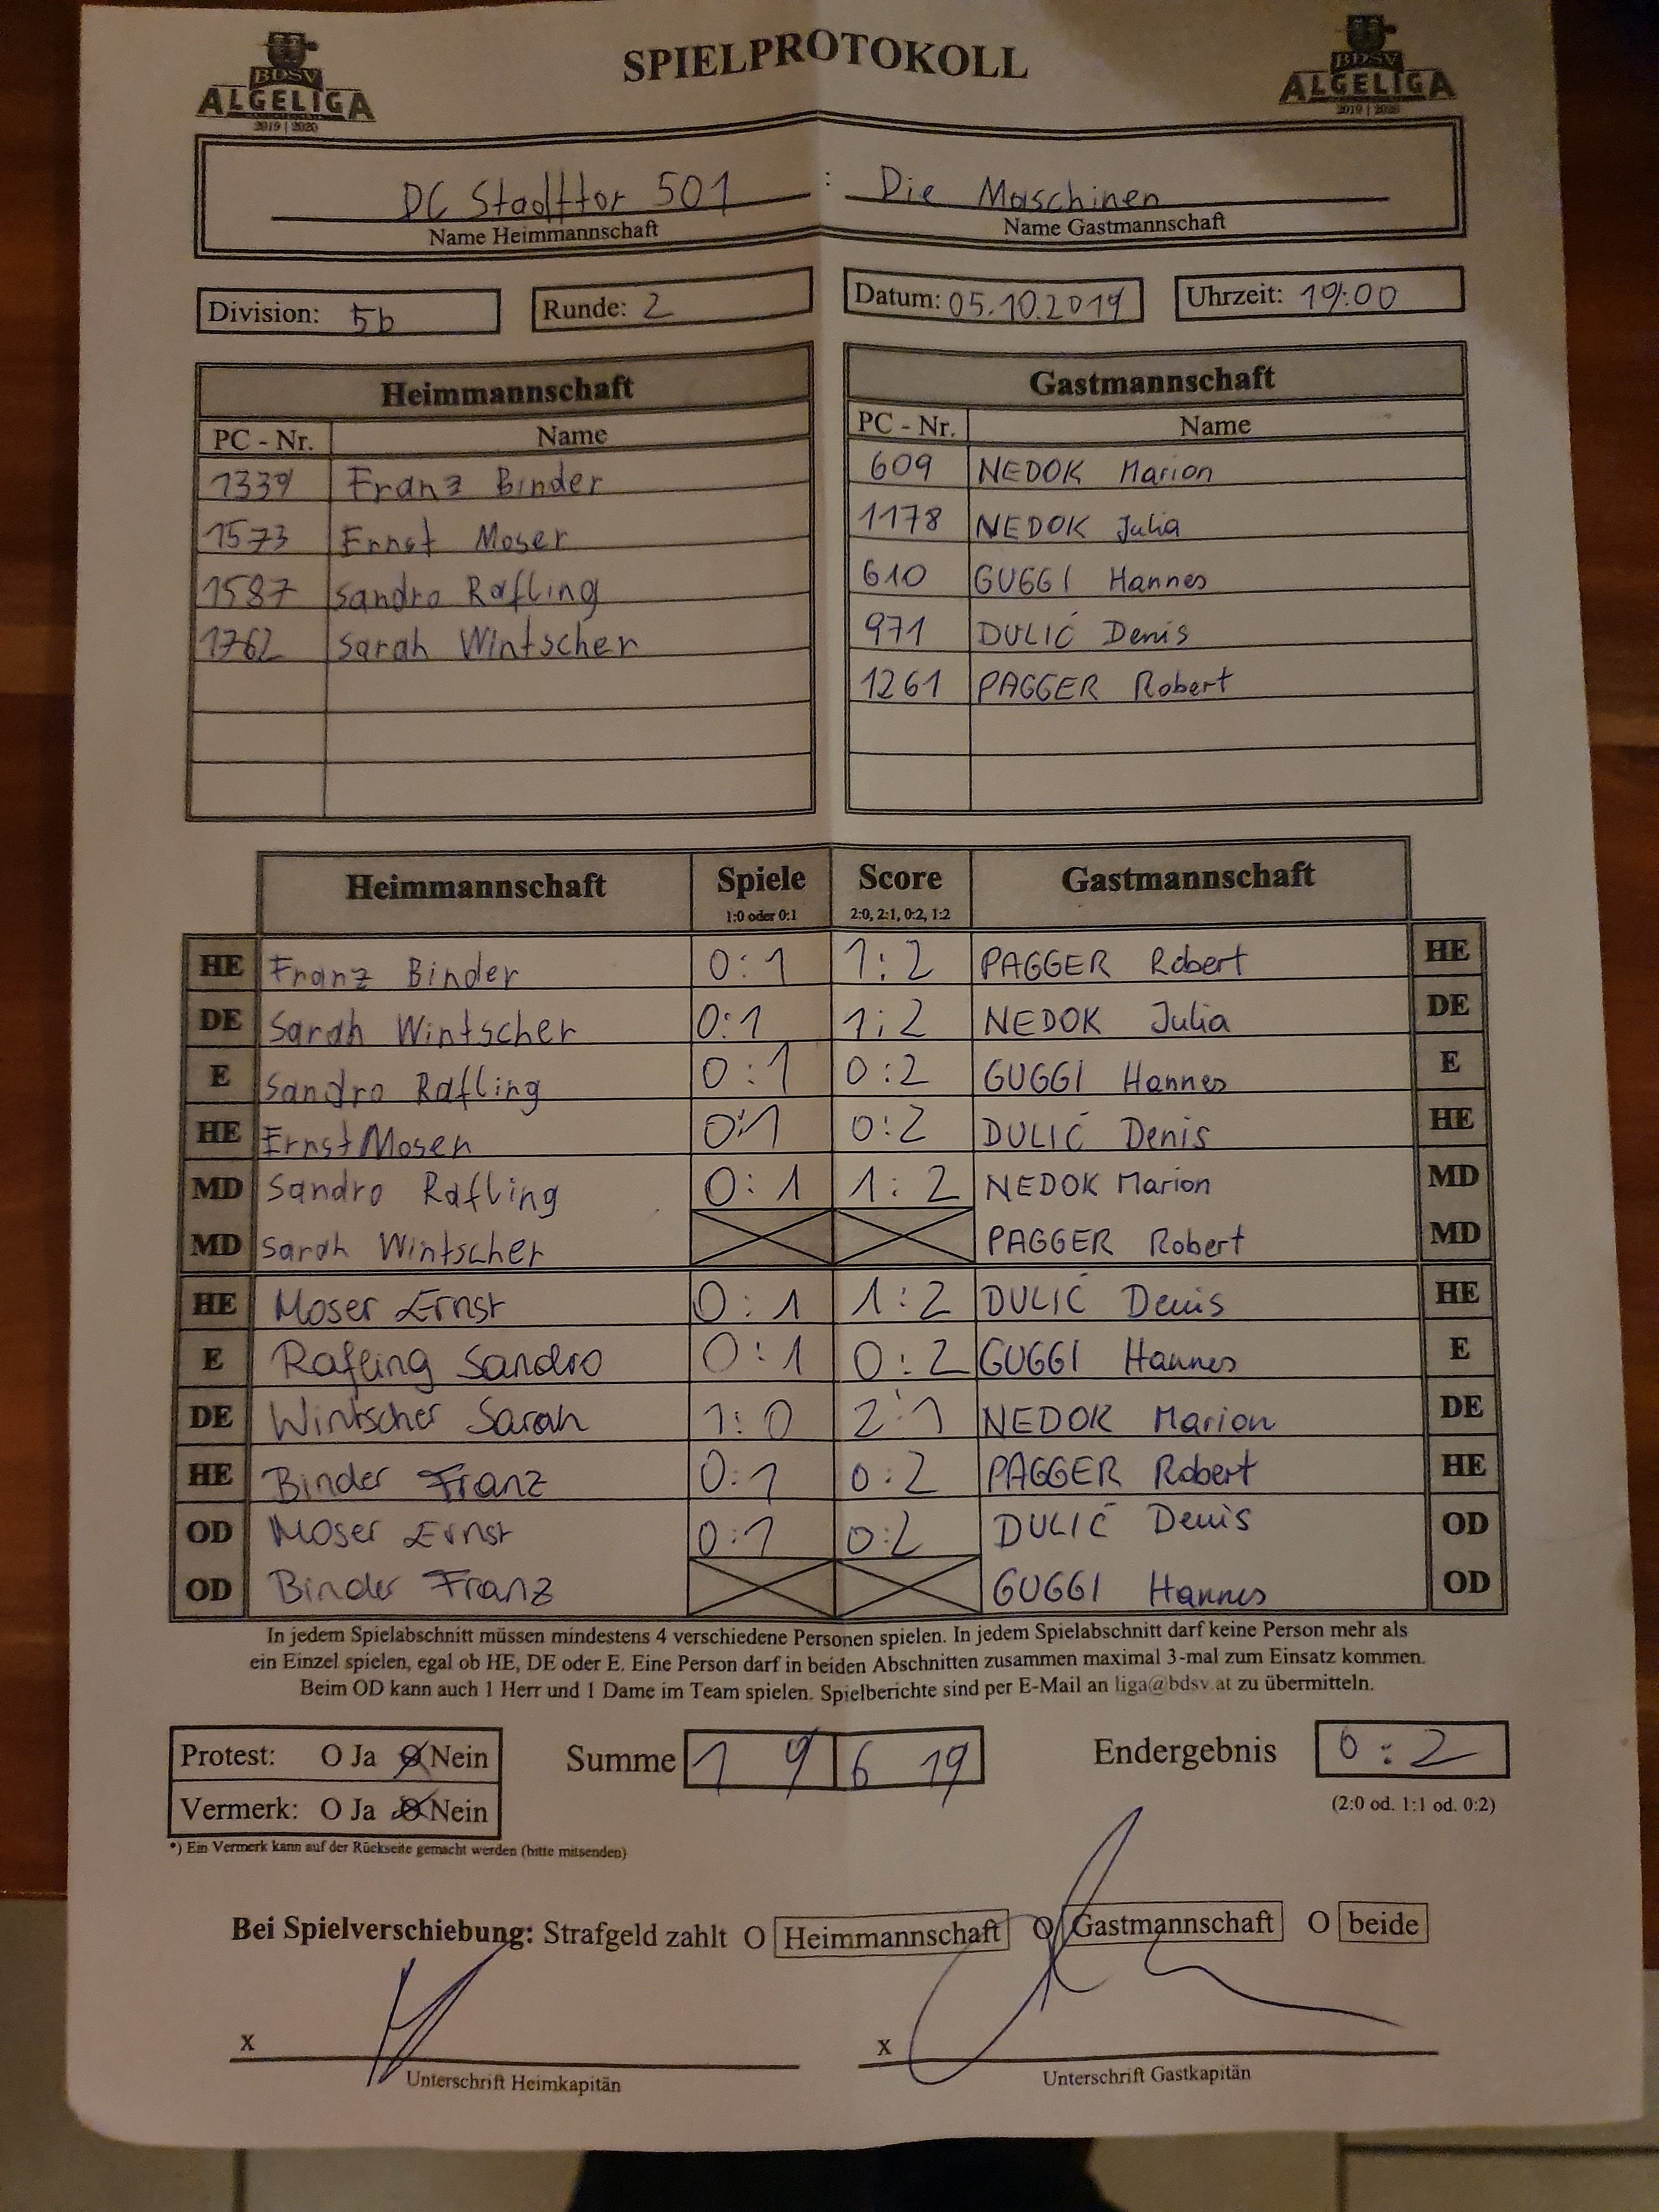 BDSV
ALGELIGA
2019 | 2020
SPIELPROTOKOLL
BDSV
ALGELIGA
2019 | 2020
DC Stadttor 501 : Die Maschinen
Name Heimmannschaft Name Gastmannschaft
Division: 5b Runde: 2 Datum: 05.10.2019 Uhrzeit: 19:00
Heimmannschaft Gastmannschaft
PC - Nr. Name PC - Nr. Name
1339 Franz Binder 609 NEDOK Marion
1573 Ernst Moser 1178 NEDOK Julia
1587 Sandro Rafling 610 GUGGI Hannes
1762 Sarah Wintscher 971 DULIĆ Denis
1261 PAGGER Robert
Heimmannschaft Spiele Score Gastmannschaft
1:0 oder 0:1 2:0, 2:1, 0:2, 1:2
HE Franz Binder 0:1 1:2 PAGGER Robert HE
DE Sarah Wintscher 0:1 1:2 NEDOK Julia DE
E Sandro Rafling 0:1 0:2 GUGGI Hannes E
HE Ernst Moser 0:1 0:2 DULIĆ Denis HE
MD Sandro Rafling 0:1 1:2 NEDOK Marion MD
MD Sarah Wintscher PAGGER Robert MD
HE Moser Ernst 0:1 1:2 DULIĆ Denis HE
E Rafling Sandro 0:1 0:2 GUGGI Hannes E
DE Wintscher Sarah 1:0 2:1 NEDOK Marion DE
HE Binder Franz 0:1 0:2 PAGGER Robert HE
OD Moser Ernst 0:1 0:2 DULIĆ Denis OD
OD Binder Franz GUGGI Hannes OD
In jedem Spielabschnitt müssen mindestens 4 verschiedene Personen spielen. In jedem Spielabschnitt darf keine Person mehr als
ein Einzel spielen, egal ob HE, DE oder E. Eine Person darf in beiden Abschnitten zusammen maximal 3-mal zum Einsatz kommen.
Beim OD kann auch 1 Herr und 1 Dame im Team spielen. Spielberichte sind per E-Mail an liga@bdsv.at zu übermitteln.
Protest: O Ja O Nein Summe 1 9 6 19 Endergebnis 0:2
Vermerk: O Ja O Nein (2:0 od. 1:1 od. 0:2)
*) Ein Vermerk kann auf der Rückseite gemacht werden (bitte mitsenden)
Bei Spielverschiebung: Strafgeld zahlt O Heimmannschaft O Gastmannschaft O beide
x x
Unterschrift Heimkapitän Unterschrift Gastkapitän